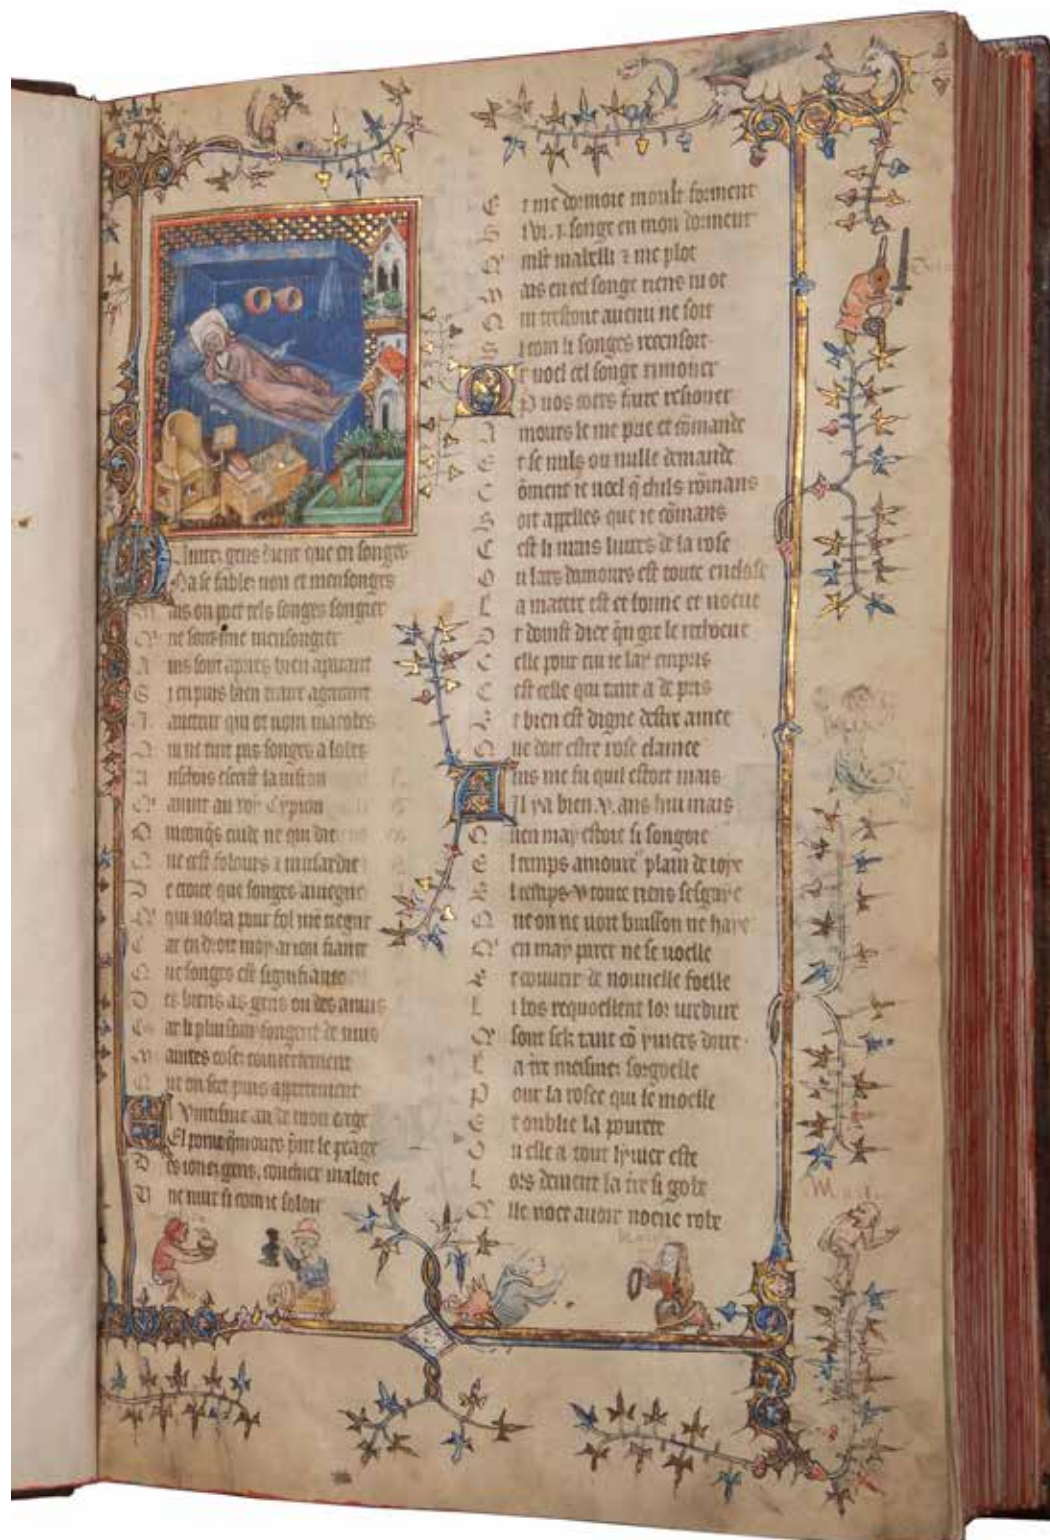 Aintez gens dient que en songes
Na se fables non et mensonges
Mais on puet tels songes songier
Qi ne sont mie mensongier
Ains sont apres bien aparant
Si en puis bien traire a garant
J aucteur qui ot nom macobes
Qui ne tint pas songes a lobes
Ainschois escrist la vision
Qi avint au roy Cypion
Quiconqs cuide ne qui die
Que cest folours ⁊ musardie
De croire que songes aviegne
Qi voldra pour fol me tiegne
Car en droit moy ai ien fiance
Que songes est signifiance
Des biens as gens ou des anuis
Car li pluisour songent de nuis
Maintes coses couvertement
Que on voit puis appertement
V vintisme an de mon eage
El point qamours prent le peage
Des iones gens, couchier maloie
Une nuit si com ie soloie
Et me dormoie moult forment
Si vi .i. songe en mon dorment
Qi mlt ma belli ⁊ me plot
Mais en cel songe riens ni ot
Qui trestout avenu ne soit
Si com li songes recensoit
Or voel cel songe rimoier
Pour vos cuers faire resioier
Amours le me prie et cōmande
Et se nuls ou nulle demande
Cōment ie voel q̄ chils rōmans
Soit appelles que ie cōmans
Cest li rōmans de la rose
Ou lars damours est toute enclose
La matere est et bonne et noeve
Or doinst diex q̄n gre le rechoeve
Celle pour cui ie lay empris
Cest celle qui tant a de pris
Et bien est digne destre amee
Que doit estre rose clamee
Avis me fu quil estoit mais
Il y a bien .v. ans hui mais
Quen may estoie si songoie
El temps amoureus plain de ioye
El temps v toute riens sesgaye
Que on ne voit buisson ne haye
Qi en may parer ne se voelle
Et couvrir de nouvelle foelle
Li bos requoellent lor verdure
Qi sont sek tant cō yviers dure
La tre meismes sorgoelle
Pour la rosee qui le moelle
Et oublie la povrete
Ou elle a tout lyvier este
Lors devient la tre si gobe
Qlle voet avoir noeve robe